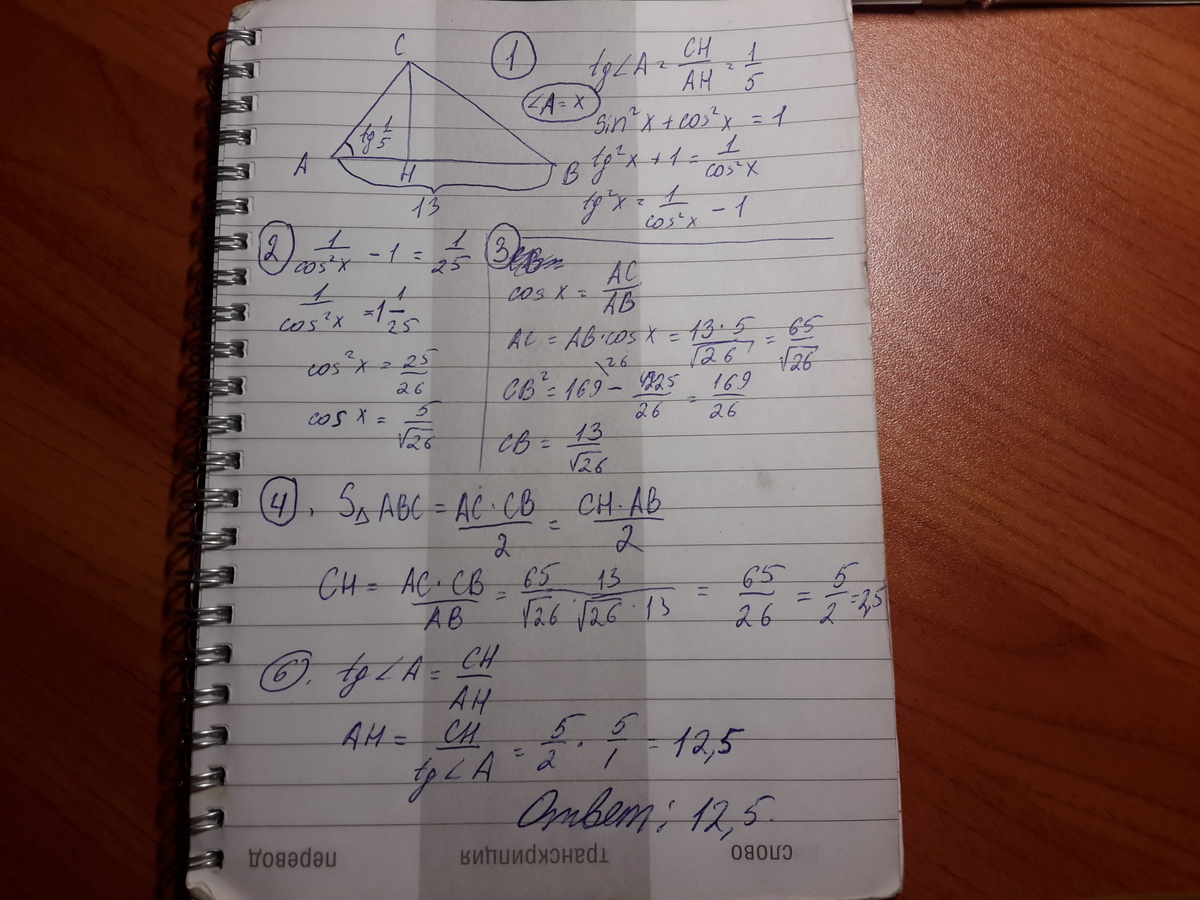 C
A
H
B
tg 1/5
13
① tg∠A = CH/AH = 1/5
∠A = x
sin²x + cos²x = 1
tg²x + 1 = 1/cos²x
tg²x = 1/cos²x - 1
② 1/cos²x - 1 = 1/25
1/cos²x = 1 1/25
cos²x = 25/26
cos x = 5/√26
③
cos x = AC/AB
AC = AB·cos x = 13·5/√26 = 65/√26
CB² = 169\26 - 4225/26 = 169/26
CB = 13/√26
④. S△ABC = AC·CB/2 = CH·AB/2
CH = AC·CB/AB = 65/√26 · 13/√26·13 = 65/26 = 5/2 = 2,5
⑥. tg∠A = CH/AH
AH = CH/tg∠A = 5/2 · 5/1 = 12,5
Ответ: 12,5.
слово
транскрипция
перевод